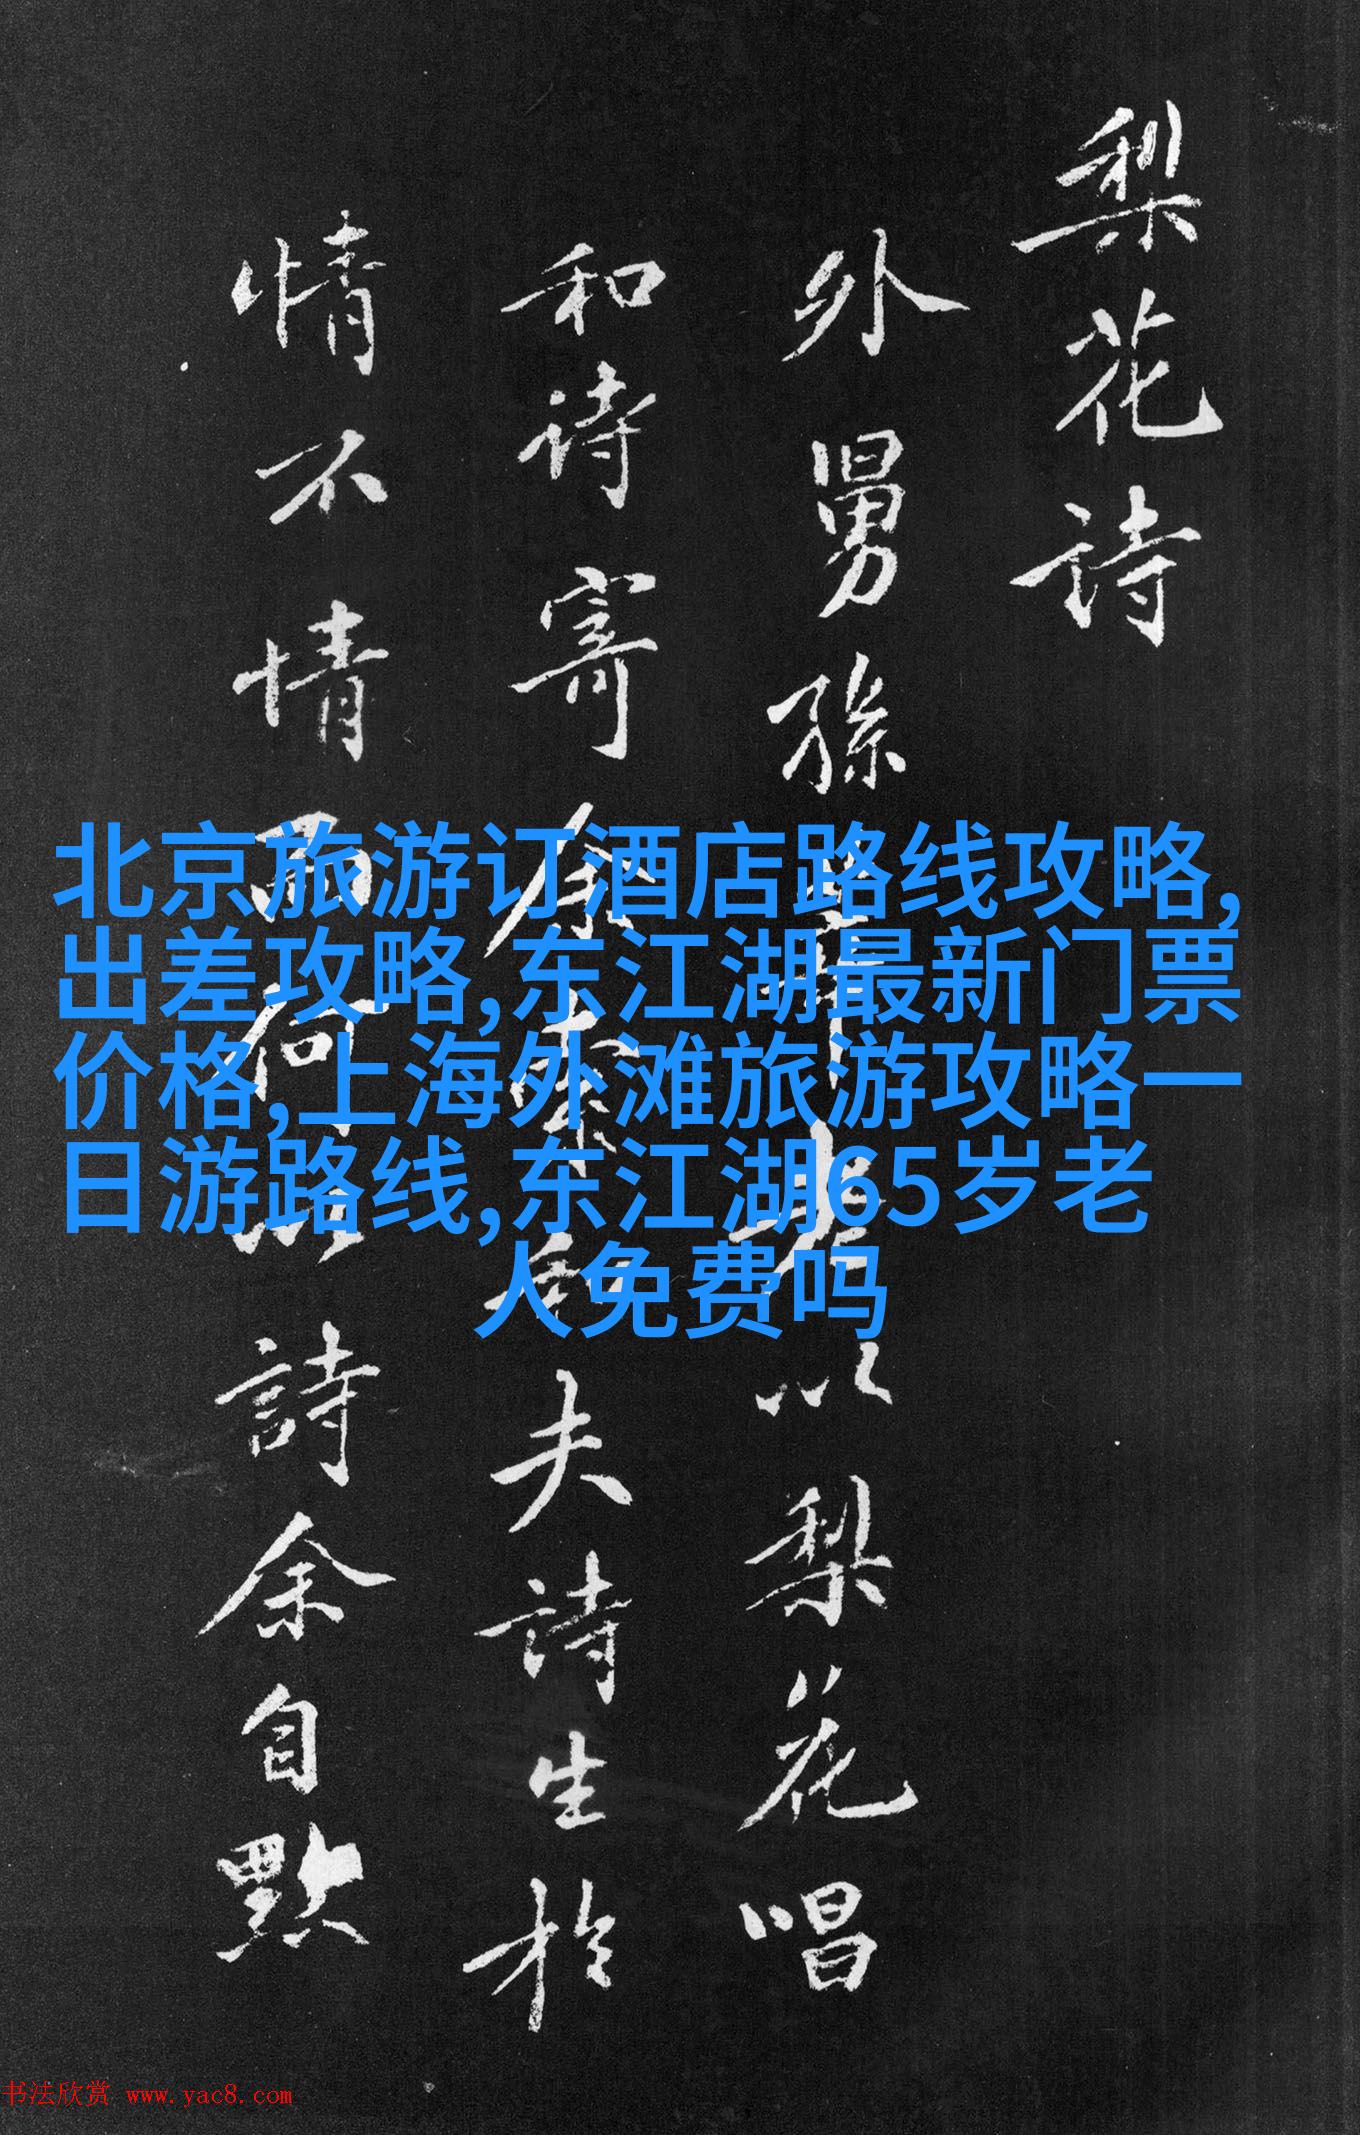 梨花詩
外舅孫莘老以梨花唱
和诗寄余余素
夫詩生於
情不情而何以詩余自黙
北京旅游订酒店路线攻略,
出差攻略,东江湖最新门票
价格,上海外滩旅游攻略一
日游路线,东江湖65岁老
人免费吗
书法欣赏 www.yac8.com